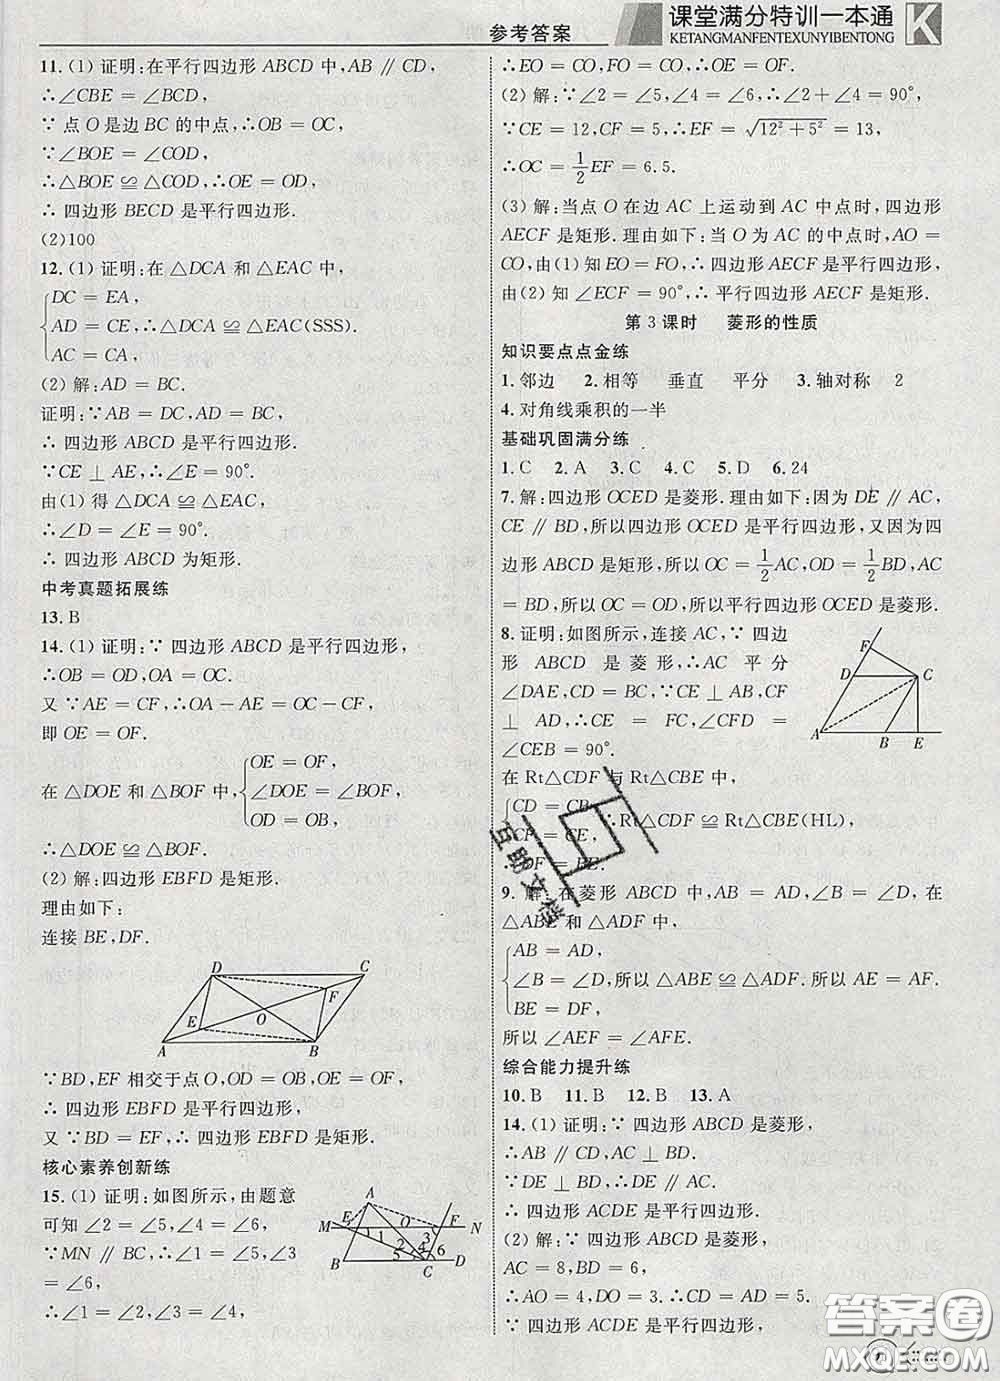 参考答案
课堂满分特训一本通
KETANGMANFENTEXUNYIBENTONG
K
11. (1) 证明:在平行四边形 ABCD 中,AB ∥ CD,
∴∠CBE = ∠BCD,
∵ 点 O 是边 BC 的中点,∴OB = OC,
∵∠BOE = ∠COD,
∴△BOE ≌ △COD,∴OE = OD,
∴ 四边形 BECD 是平行四边形.
(2)100
12. (1) 证明:在 △DCA 和 △EAC 中,
DC = EA,
AD = CE,∴△DCA ≌ △EAC(SSS).
AC = CA,
(2) 解:AD = BC.
证明:∵AB = DC,AD = BC,
∴ 四边形 ABCD 是平行四边形.
∵CE ⊥ AE,∴∠E = 90°.
由(1) 得 △DCA ≌ △EAC,
∴∠D = ∠E = 90°.
∴ 四边形 ABCD 为矩形.
中考真题拓展练
13. B
14. (1) 证明:∵ 四边形 ABCD 是平行四边形,
∴OB = OD,OA = OC.
又 ∵AE = CF,∴OA − AE = OC − CF,
即 OE = OF.
OE = OF,
在 △DOE 和 △BOF 中, ∠DOE = ∠BOF,
OD = OB,
∴△DOE ≌ △BOF.
(2) 解:四边形 EBFD 是矩形.
理由如下:
连接 BE,DF.
D C F O E A B
∵BD,EF 相交于点 O,OD = OB,OE = OF,
∴ 四边形 EBFD 是平行四边形,
又 ∵BD = EF,∴ 四边形 EBFD 是矩形.
核心素养创新练
15. (1) 证明:如图所示,由题意
可知 ∠2 = ∠5,∠4 = ∠6,
∵MN ∥ BC,∴∠1 = ∠5,∠3
= ∠6,
∴∠1 = ∠2,∠3 = ∠4,
A M E O F N 1 3 2 4 5 6 B C D
∴EO = CO,FO = CO,∴OE = OF.
(2) 解:∵∠2 = ∠5,∠4 = ∠6,∴∠2 + ∠4 = 90°,
∵CE = 12,CF = 5,∴EF = √(12² + 5²) = 13,
∴OC = 1/2 EF = 6.5.
(3) 解:当点 O 在边 AC 上运动到 AC 中点时,四边形
AECF 是矩形. 理由如下:当 O 为 AC 的中点时,AO =
CO,由(1) 知 EO = FO,∴ 四边形 AECF 是平行四边形,
由(2) 知 ∠ECF = 90°,∴ 平行四边形 AECF 是矩形.
第 3 课时 菱形的性质
知识要点点金练
1. 邻边 2. 相等 垂直 平分 3. 轴对称 2
4. 对角线乘积的一半
基础巩固满分练
1. C 2. A 3. C 4. C 5. D 6. 24
7. 解:四边形 OCED 是菱形. 理由如下:因为 DE ∥ AC,
CE ∥ BD,所以四边形 OCED 是平行四边形,又因为四
边形 ABCD 是矩形,所以 OC = 1/2 AC,OD = 1/2 BD,AC
= BD,所以 OC = OD,所以平行四边形 OCED 是菱形.
8. 证明:如图所示,连接 AC,∵ 四边
形 ABCD 是菱形,∴AC 平分
∠DAE,CD = BC,∵CE ⊥ AB,CF
⊥ AD,∴CE = FC,∠CFD =
∠CEB = 90°.
F D C A B E
在 Rt△CDF 与 Rt△CBE 中,
CD = CB,
CF = CE, ∴Rt△CDF ≌ Rt△CBE(HL),
∴DF = BE.
9. 解:在菱形 ABCD 中,AB = AD,∠B = ∠D,在
△ABE 和 △ADF 中,
AB = AD,
∠B = ∠D,所以 △ABE ≌ △ADF,所以 AE = AF,
BE = DF,
所以 ∠AEF = ∠AFE.
综合能力提升练
10. B 11. B 12. B 13. A
14. (1) 证明:∵ 四边形 ABCD 是菱形,
∴AB ∥ CD,AC ⊥ BD.
∵DE ⊥ BD,∴DE ∥ AC.
∴ 四边形 ACDE 是平行四边形.
(2) 解:∵ 四边形 ABCD 是菱形,
AC = 8,BD = 6,
∴AO = 4,DO = 3.∴CD = AD = 5.
∵ 四边形 ACDE 是平行四边形,
互助文档
答案圈
MXQE.COM